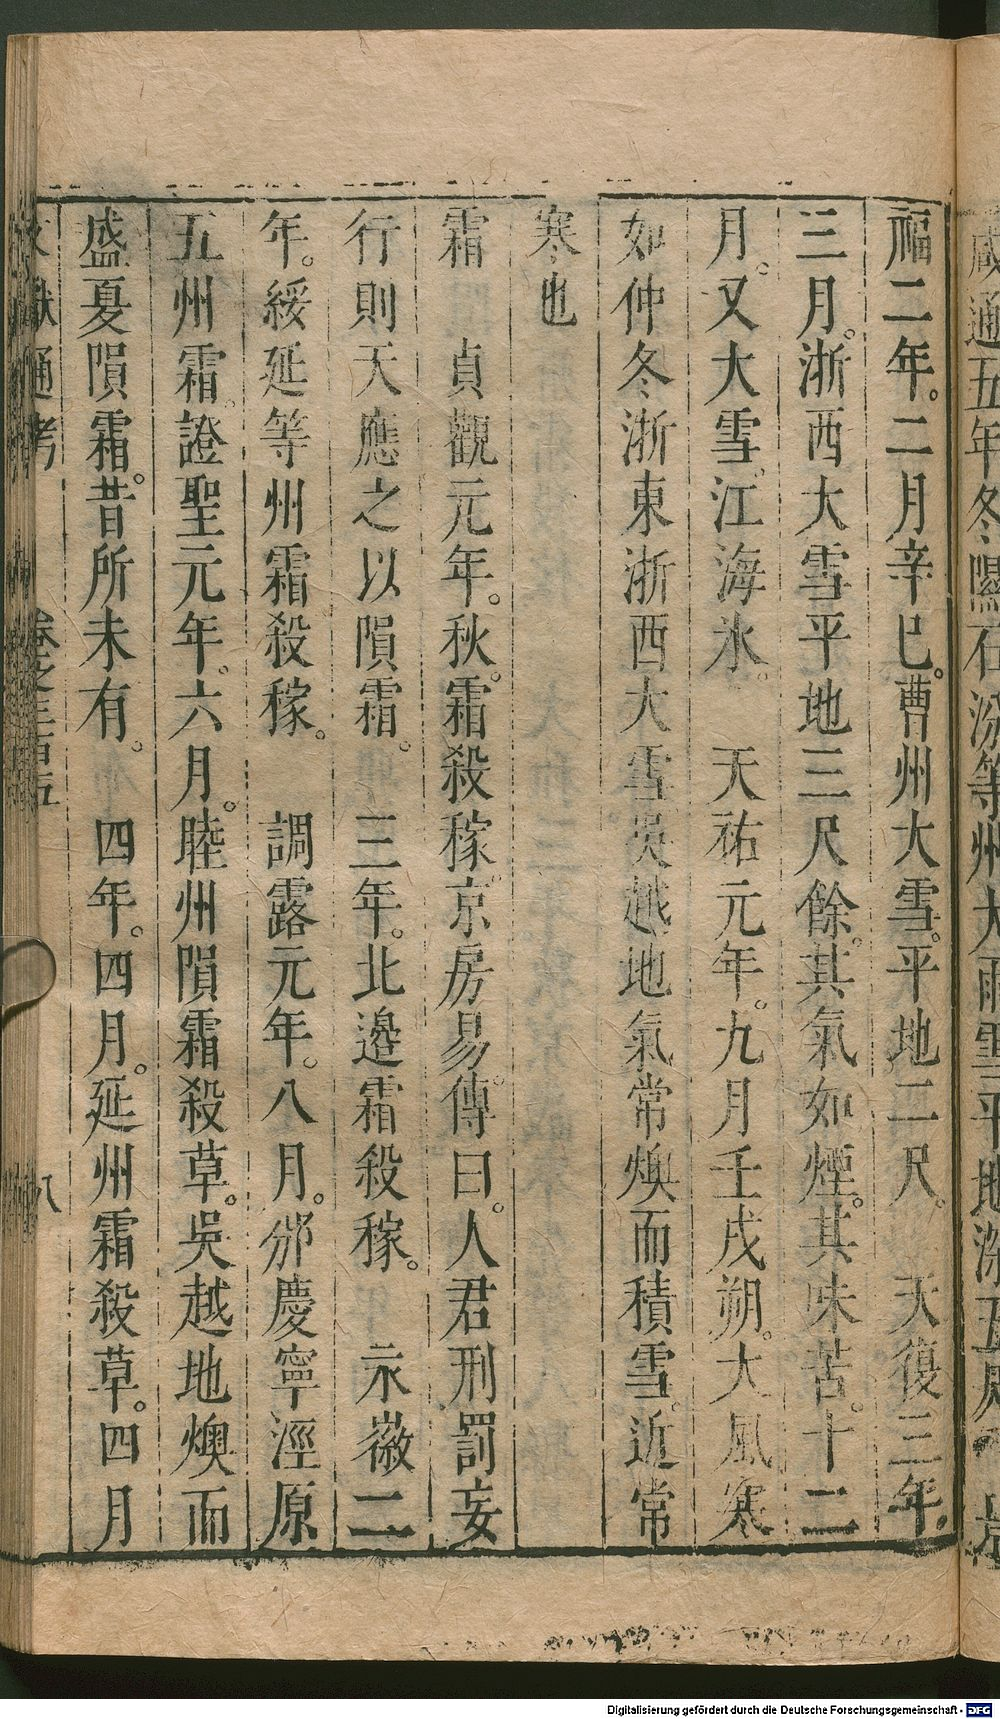 咸通五年冬隰石汾等州大雨雪平地深五尺
福二年。二月辛巳。曹州大雪。平地二尺。　天復三年。
三月。浙西大雪平地三尺餘。其氣如煙。其味苦。十二
月。又大雪。江海氷。　天祐元年。九月壬戌朔。大風寒
如仲冬浙東浙西大雪。吳越地氣常燠而積雪。近常
寒也
霜　貞觀元年。秋。霜殺稼。京房易傳曰。人君刑罰妄
行則天應之以隕霜。　三年。北邊霜殺稼。　永徽二
年。綏延等州霜殺稼。　調露元年。八月。邠慶寧涇原
五州霜。證聖元年。六月。睦州隕霜殺草。吳越地燠而
盛夏隕霜。昔所未有。　四年。四月。延州霜殺草。四月
文獻通考　卷之三百五　八
Digitalisierung gefördert durch die Deutsche Forschungsgemeinschaft - DFG